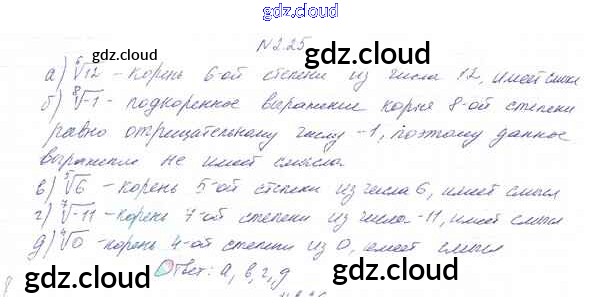 gdz.cloud
N2.25
gdz.cloud gdz.cloud
а) ⁶√12 – корень 6-ой степени из числа 12, имеет смысл
б) ⁸√-1 – подкоренное выражение корня 8-ой степени
равно отрицательному числу -1, поэтому данное
выражение не имеет смысла.
в) ⁵√6 – корень 5-ой степени из числа 6, имеет смысл
г) ⁷√-11 – корень 7-ой степени из числа -11, имеет смысл
gdz.cloud gdz.cloud
д) ⁴√0 – корень 4-ой степени из 0, имеет смысл
Ответ: а, в, г, д
gdz.cloud